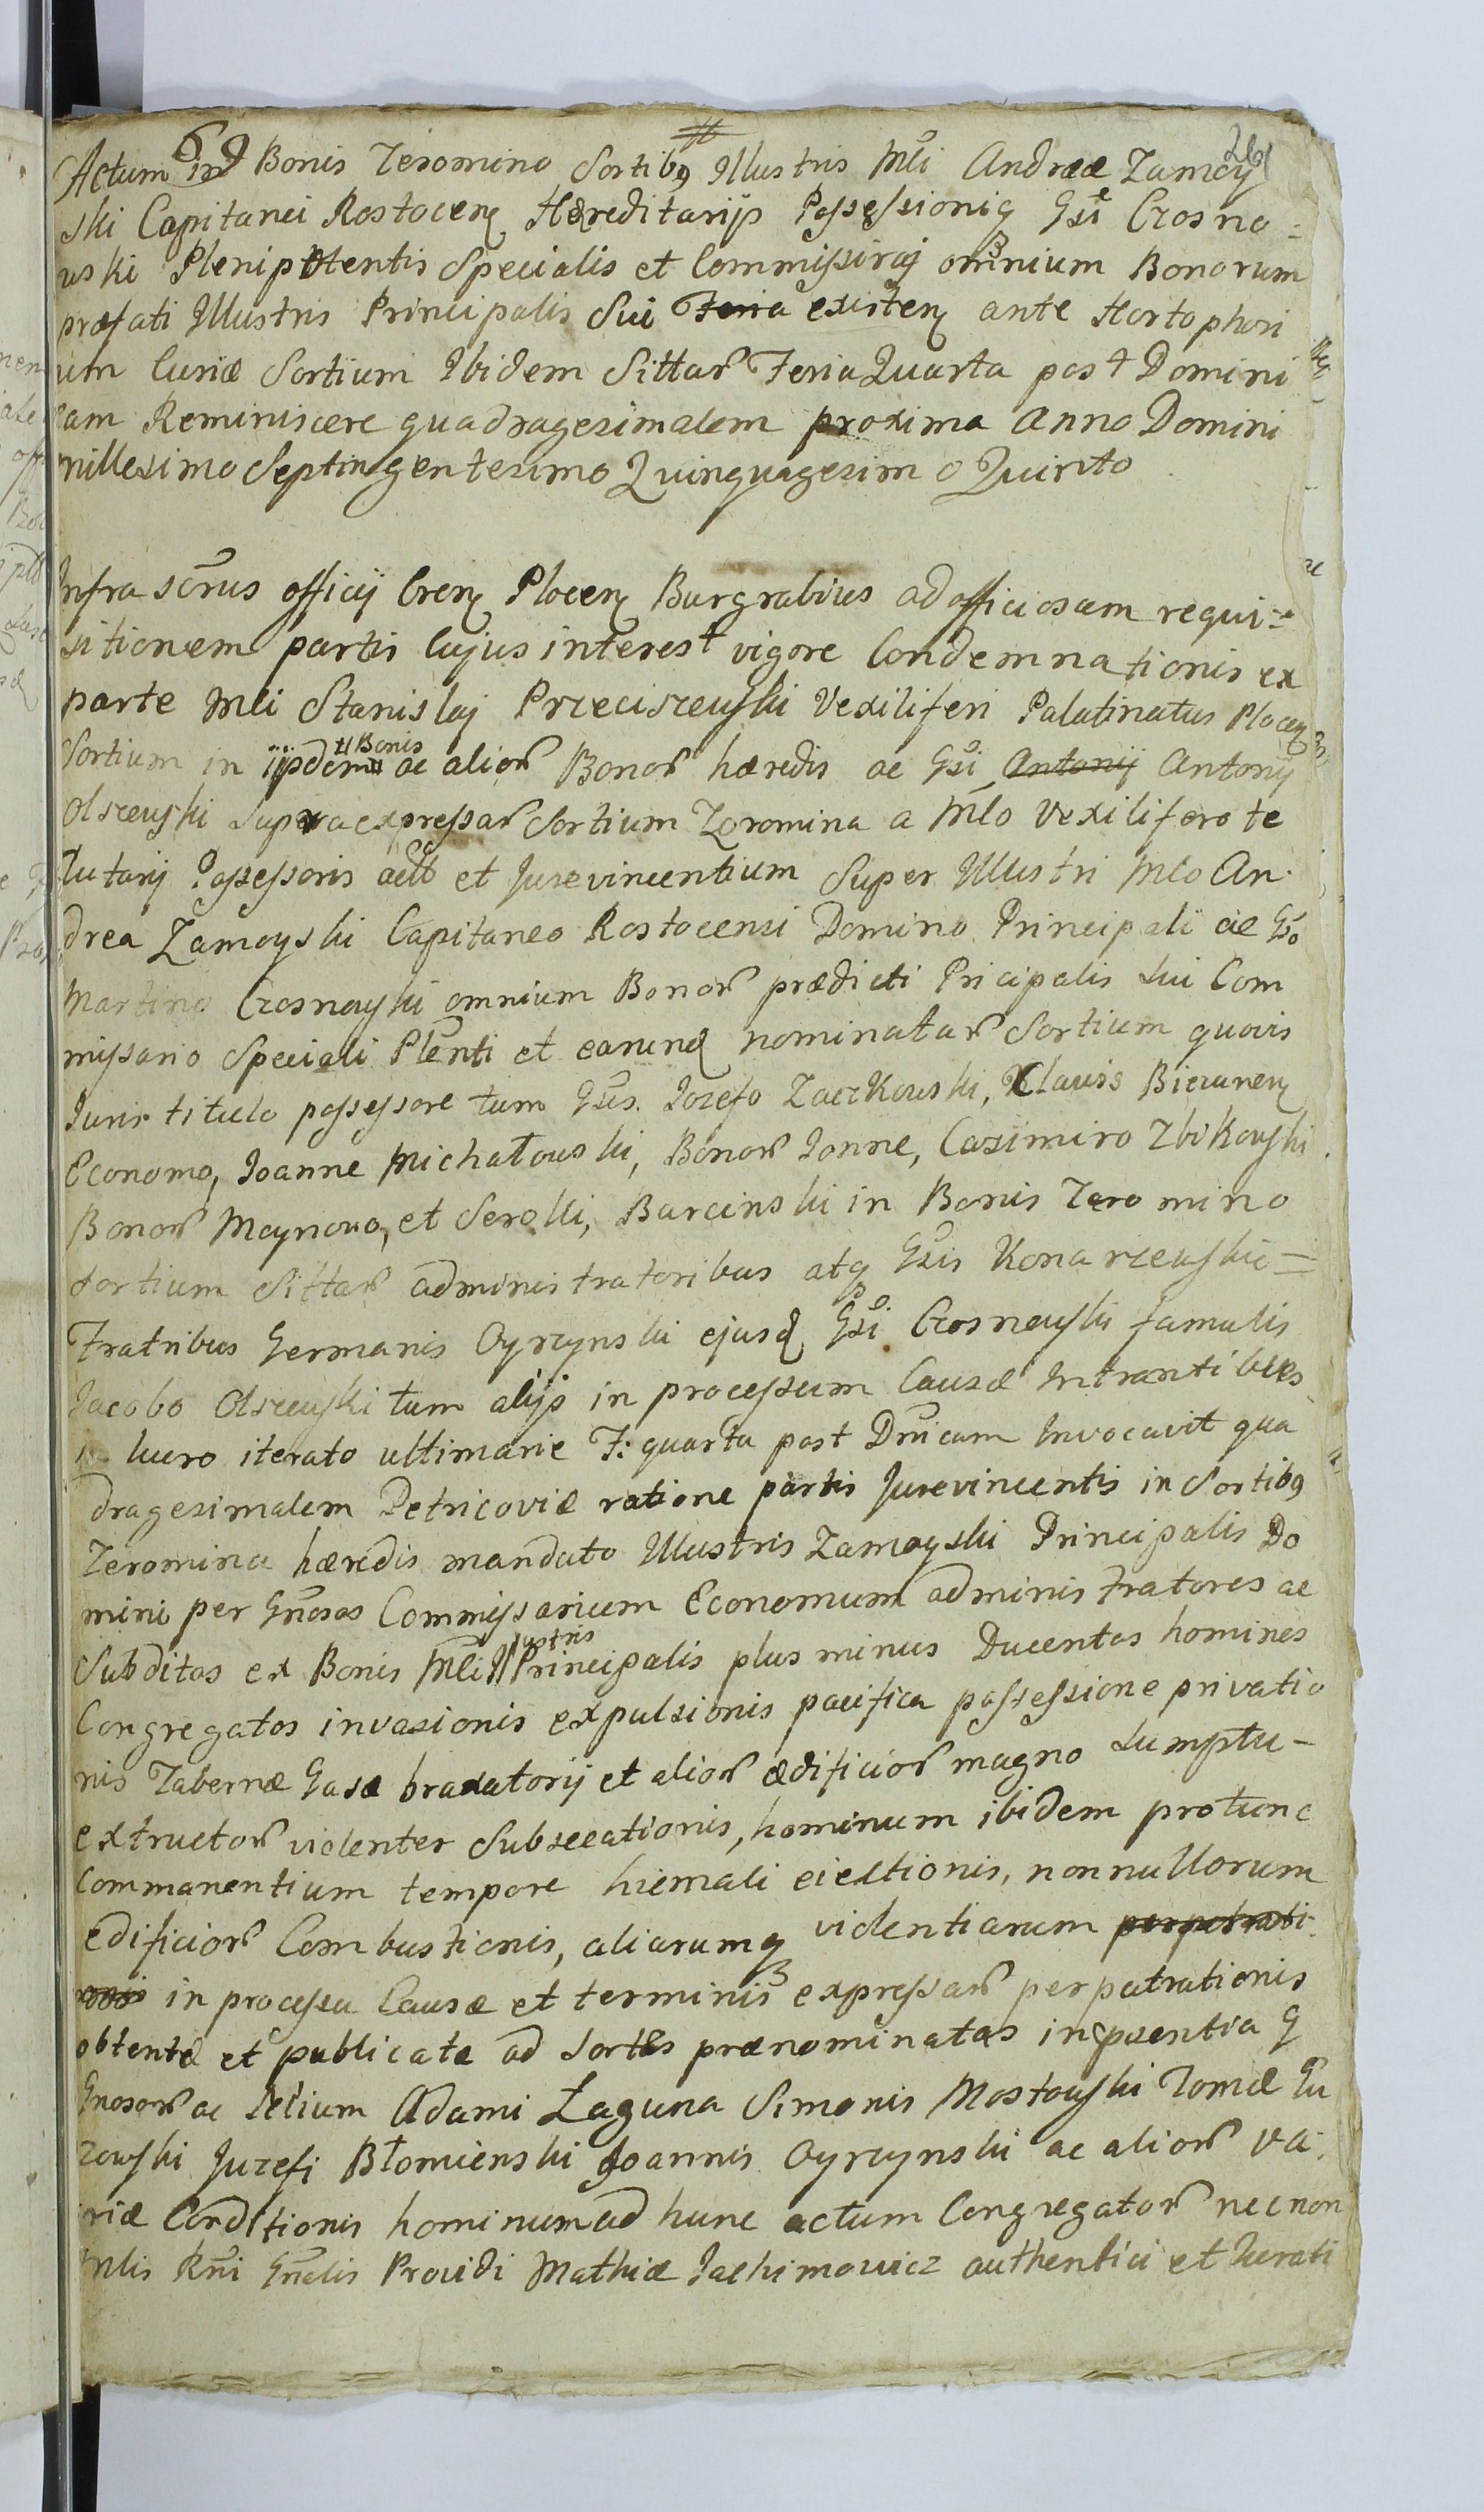 69 #
Actum in Bonis Zeromino Sortibq Illustris Mfci Andreæ Zamoy
ski Capitanei Rostocen Hæreditarijs Possessioniq Gsi Czosno=
wski Plenipotentis Specialis et Commissiraj omnium Bonorum
præfati Illustris Principalis Sui Feria existen ante Hortophori
um Curiæ Sortium Ibidem Sittar Feria Quarta post Domini
cam Reminiscere quadragesimalem proxima Anno Domini
millesimo Septingentesimo Quinquagesimo Quinto

Infra scrus officij Cren Plocen Burgrabius ad officiosam requi=
sitionem partis Cujus interest vigore Condemnationis ex
parte Mfci Stanislaj Przeciszewski Vexiliferi Palatinatus Plocen
Sortium in iisdem Bonis ac alior Bonor hæredis ac Gsi Antonij Antonij
Olszewski Supra expressar Sortium Zeromina a Mfco Vexilifero te
Tutarij Possessoris actt et Jurevincentium Super Illustri Mfco An
drea Zamoyski Capitaneo Rostocensi Domino Principali ac Gso
Martino Czosnowski omnium Bonor prædicti Pricipalis sui Com
missario Speciali Plenti et earund nominatar Sortium quovis
Juris titulo possessore tum Gsis. Jozefo Zaczkowski, Clavis Biezunen
Economo, Joanne Michałowski, Bonor Jonne, Casimiro Zbikowski
Bonor Moynowo, et Serokki, Barcinski in Bonis Zeromino
Sortium Sittar administratoribus atq Gsis Konarzewskie=
Fratribus Germanis Oyrzynski ejusd Gsi Czosnowski famulis
Jacobo Olszewski tum alijs in processum Causæ Intrantibus
in lucro iterato ultimarie F: quarta post Dnicam Invocavit qua
dragesimalem Petricoviæ ratione partis Jurevincentis in Sortibq
Zeromina hæredis mandato Illustris Zamoyski Principalis Do
mini per Gnosos Commissarium Economum administratores ac
Subditos ex Bonis Mfci Illustris Principalis plus minus Ducentos homines
Congregatos invasionis expulsionis pacifica possessione privatio
nis Tabernæ Casæ braxatorij et alior ædificior magno sumptu-
extructor violenter Subsecationis, hominum ibidem protunc
Commanentium tempore hiemali eiectionis, nonnullorum
edificior Combustionis, aliarumq violentiarum perpetrati
onis in processu Causæ et terminis expressar perpatrationis
obtentæ et publicatæ ad Sortes prænominatas in præsentia q
Gnosor ac Adami Łaguna Simonis Mostowski Tomæ Gu
zowski Juzefi Błomienski Joannis Oyrzynski ac alior va
riæ Conditionis hominum ad hunc actum Congregator necnon
Mlis Rni Gnalis Providi Mathiæ Jachimowicz authentici et Jurati